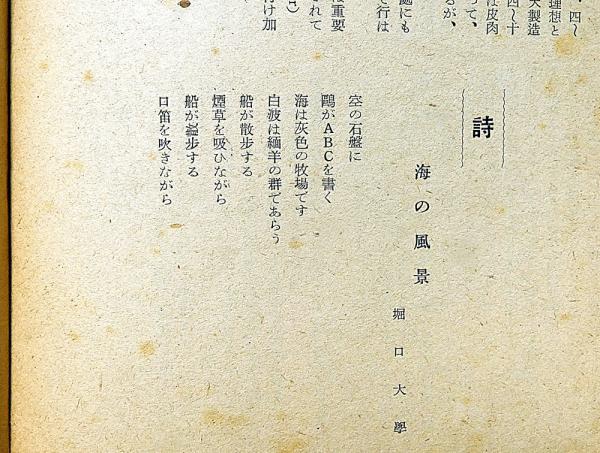 四〜
理想と
大製造
四〜十
は皮肉
って、
るが、
處にも
で行は
重要
されて
付け加
詩
海の風景
堀口大學
空の石盤に
鷗がABCを書く
海は灰色の牧場です
白波は緬羊の群であらう
船が散步する
煙草を吸ひながら
船が散步する
口笛を吹きながら